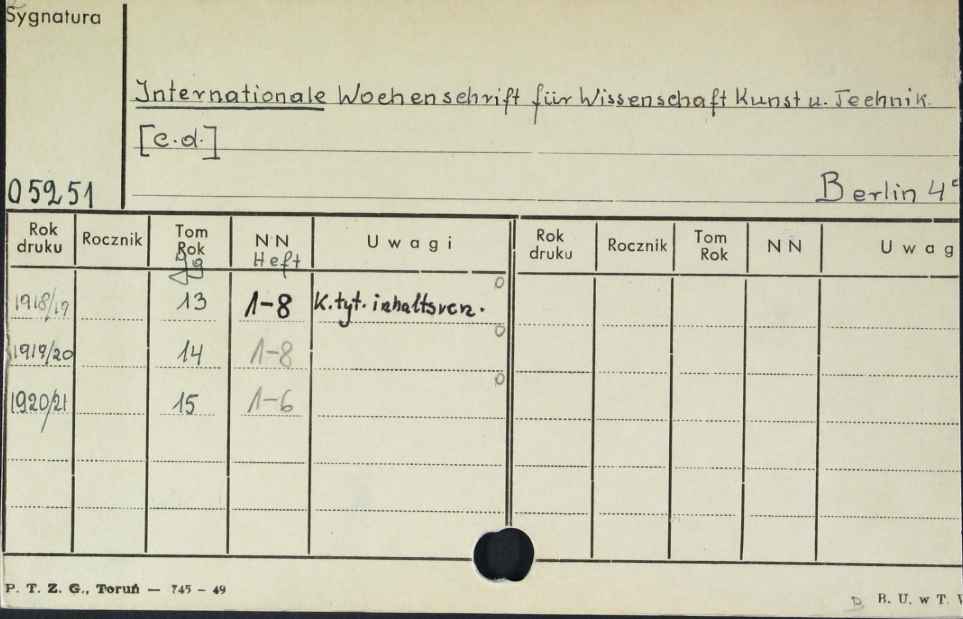 Sygnatura
Internationale Wochenschrift für Wissenschaft Kunst u. Technik.
[c.d.]
05251
Berlin 4°
Rok druku Rocznik Tom Rok NN Uwagi Rok druku Rocznik Tom Rok NN Uwag
Jg Heft
1918/19 13 1-8 K.tyt. inhaltsverz.
1919/20 14 1-8
1920/21 15 1-6
P. T. Z. G., Toruń — 745 - 49
B. U. w T.